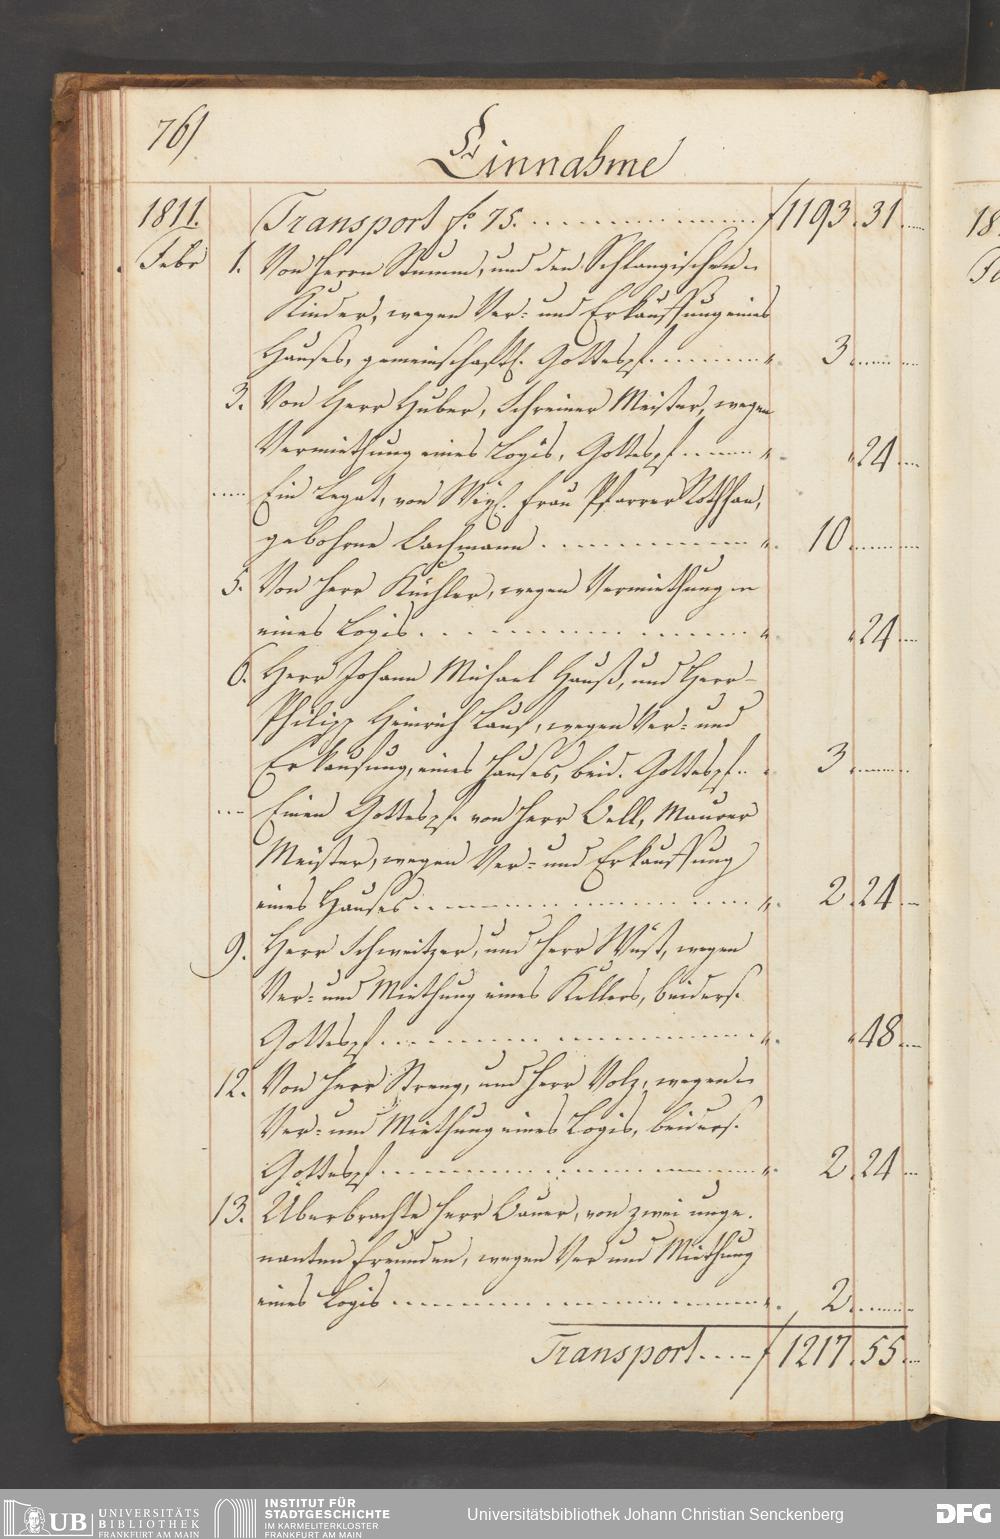 76)
Einnahme
1811. Transport f.º 75. f 1193. 31
Febr 1. Von Herrn Stumm, und den Schlangischen
Kinder, wegen Ver- und Erkauffung eines
Hauses, gemeinschaftl. Gottespf. " 3
3. Von Herr Huber, Schreiner Meister, wegen
Vermiethung eines Logis, Gottespf " " 24
Ein Legat, von Weyl. Frau Pfarrer Rothhan,
gebohrne Bachmann " 10
5. Von Herr Küchler, wegen Vermiethung
eines Logis " " 24
6. Herr Johann Michael Hauß, und Herr
Philipp Heinrich Lauf, wegen Ver- und
Erkaufung, eines Hauses, beid. Gottespf. " 3
Einen Gottespf. von Herr Oell, Maurer
Meister, wegen Ver- und Erkauffung
eines Hauses " 2. 24
9. Herr Schweitzer, und Herr Wüst, wegen
Ver- und Miethung eines Kellers, beiders.
Gottespf " " 48
12. Von Herr Streng, und Herr Volz, wegen
Ver- und Miethung eines Logis, beiders.
Gottespf " 2. 24
13. Überbrachte Herr Bauer, von zwei unge-
nanten Freunden, wegen Ver und Miethung
eines Logis " 2
Transport f 1217. 55
18
UB UNIVERSITÄTS
BIBLIOTHEK
FRANKFURT AM MAIN
INSTITUT FÜR
STADTGESCHICHTE
IM KARMELITERKLOSTER
FRANKFURT AM MAIN
Universitätsbibliothek Johann Christian Senckenberg
DFG